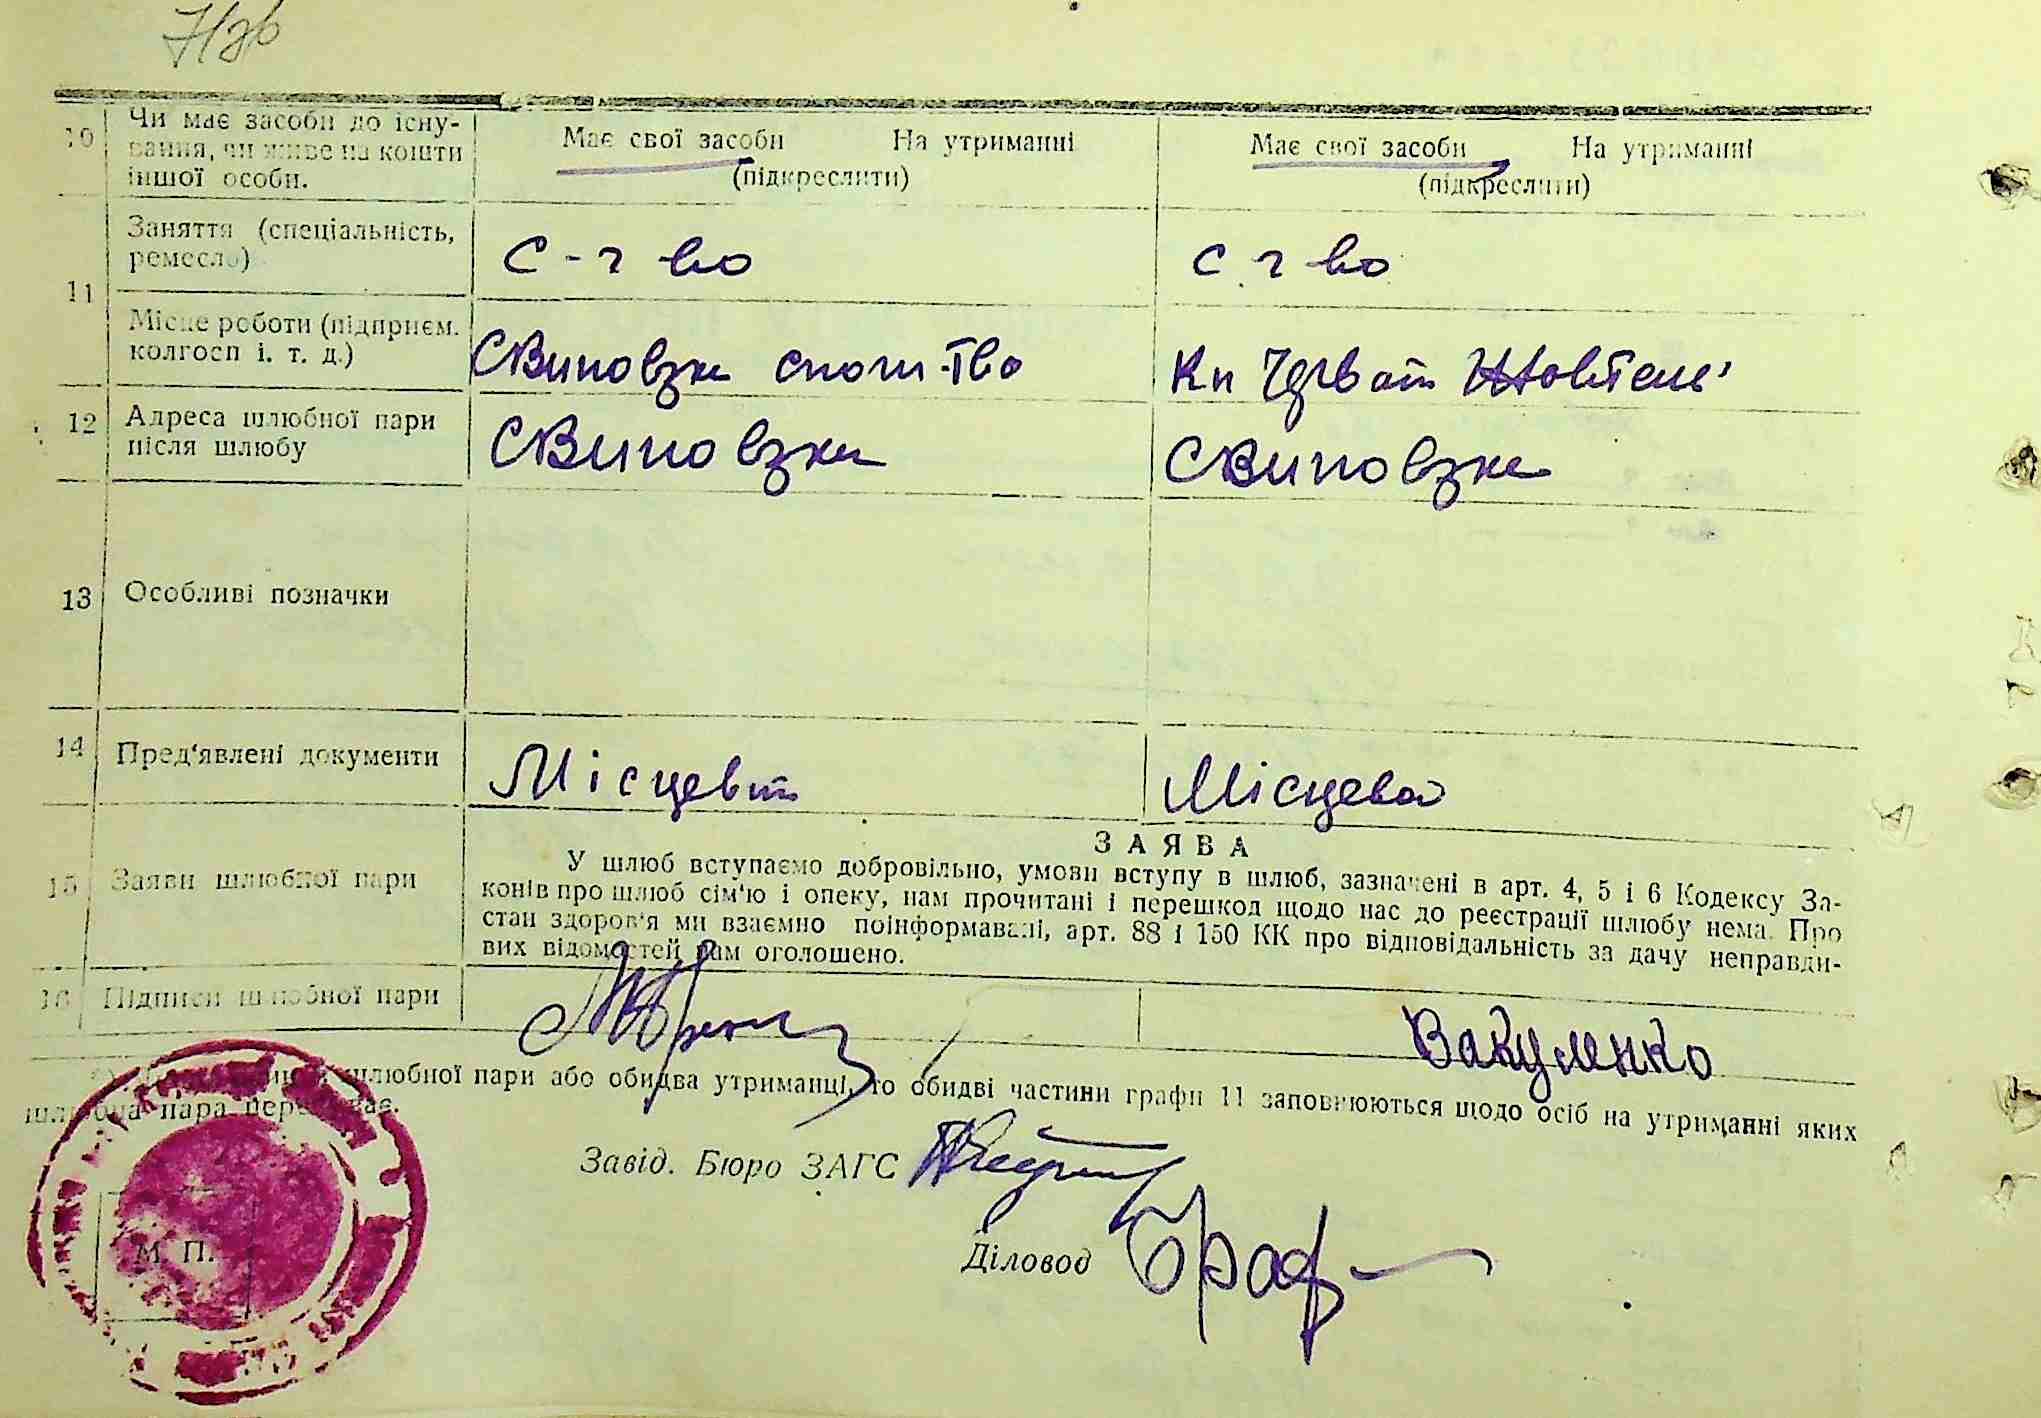 10 Чи має засоби до існу-
вання, чи живе на кошти
іншої особи.
Має свої засоби На утриманні
(підкреслити)
Має свої засоби На утриманні
(підкреслити)
11 Заняття (спеціальність,
ремесло)
С-г-во
с г во
Місце роботи (підприєм.
колгосп і. т. д.)
Кп Черв
12 Адреса шлюбної пари
після шлюбу
13 Особливі позначки
14 Пред‘явлені документи
Місцева
15 Заяви шлюбної пари
ЗАЯВА
У шлюб вступаємо добровільно, умови вступу в шлюб, зазначені в арт. 4, 5 і 6 Кодексу За-
конів про шлюб сім‘ю і опеку, нам прочитані і перешкод щодо нас до реєстрації шлюбу нема. Про
стан здоров‘я ми взаємно поінформавані, арт. 88 і 150 КК про відповідальність за дачу неправди-
вих відомостей нам оголошено.
16 Підписи шлюбної пари
Вакуленко
шлюбної пари або обидва утриманці, то обидві частини графи 11 заповнюються щодо осіб на утриманні яких
шлюбна пара перебуває.
Завід. Бюро ЗАГС
Діловод
М. П.